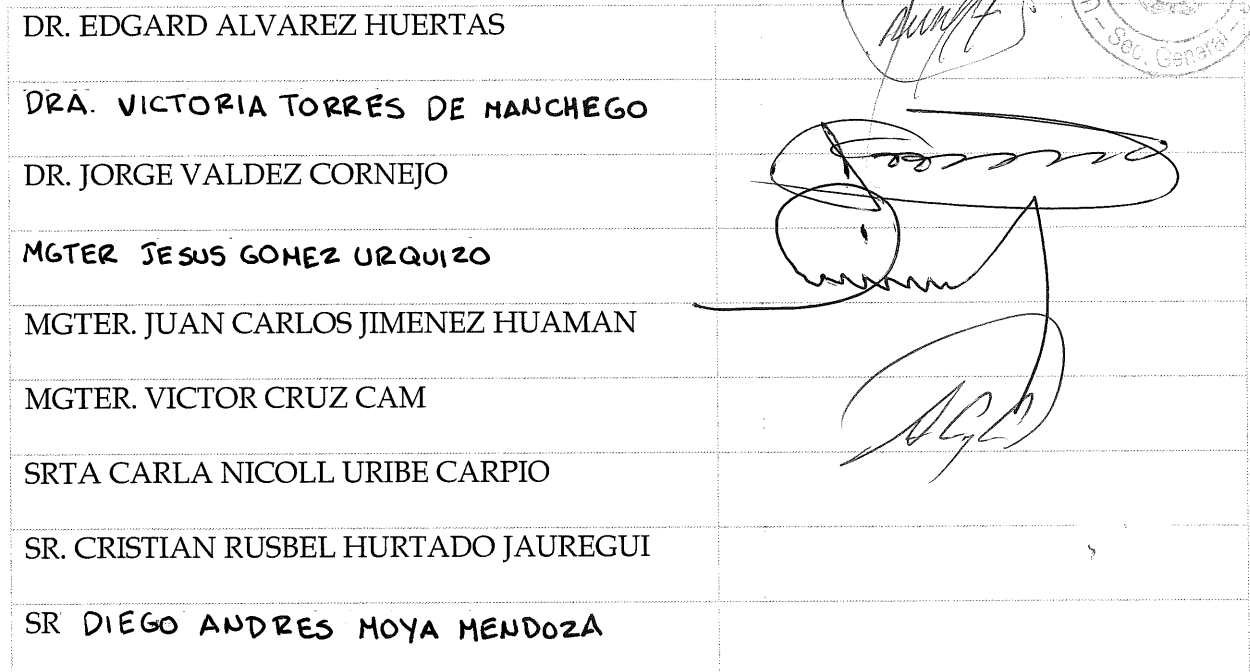 DR. EDGARD ALVAREZ HUERTAS
n – Sec. General –
DRA. VICTORIA TORRES DE MANCHEGO
DR. JORGE VALDEZ CORNEJO
MGTER JESUS GOMEZ URQUIZO
MGTER. JUAN CARLOS JIMENEZ HUAMAN
MGTER. VICTOR CRUZ CAM
SRTA CARLA NICOLL URIBE CARPIO
SR. CRISTIAN RUSBEL HURTADO JAUREGUI
SR DIEGO ANDRES MOYA MENDOZA